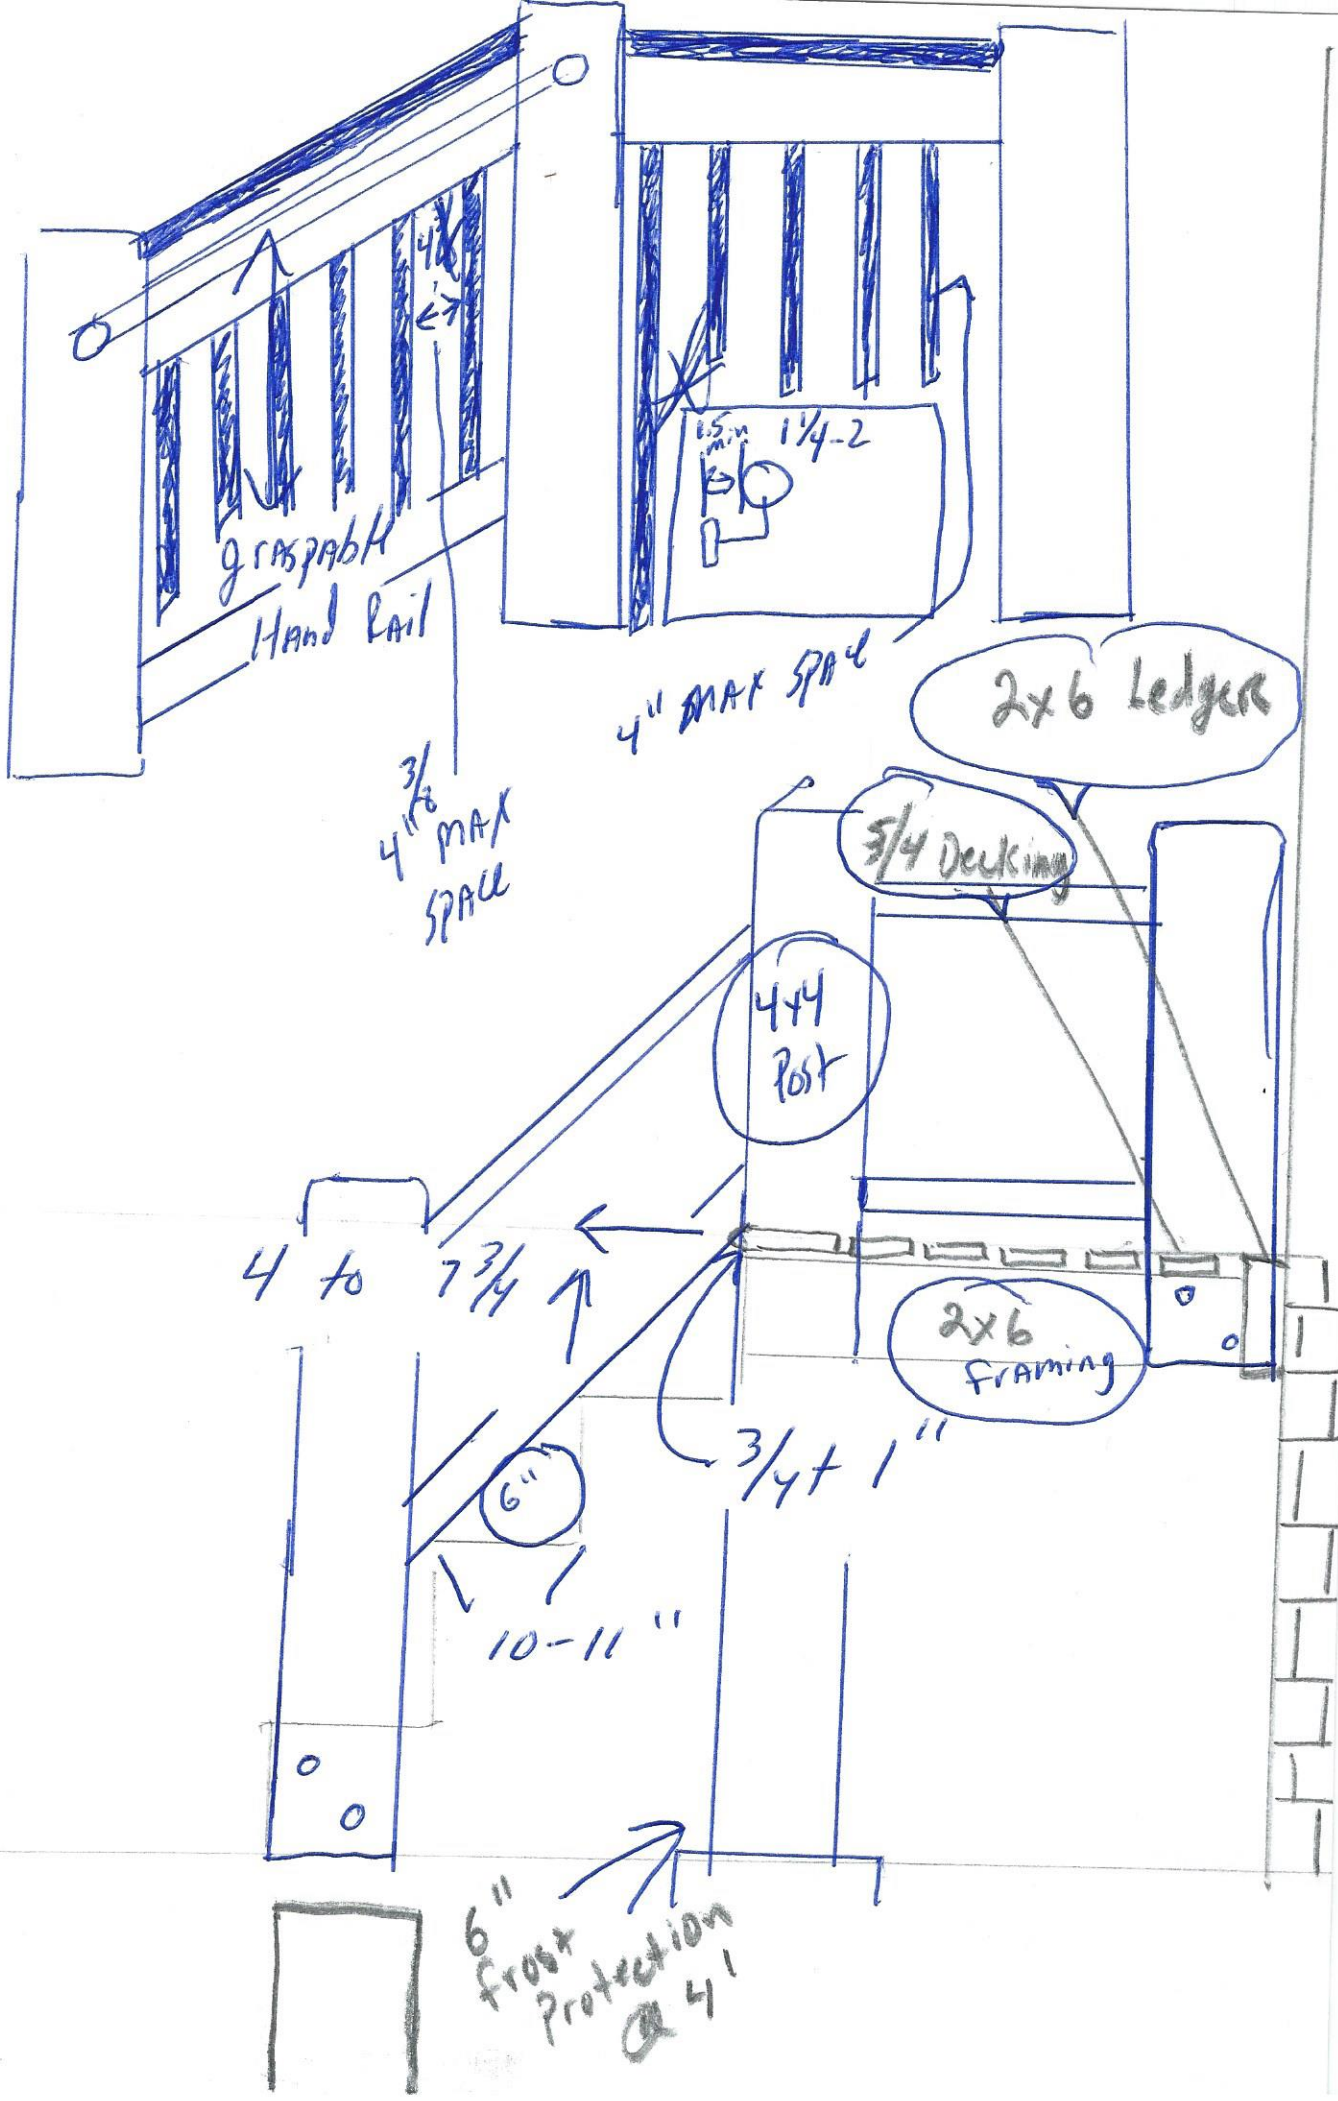 1.5 min
1 1/4-2
graspable
Hand Rail
4" MAX SPACE
4" 3/8
MAX
SPACE
2x6 Ledger
5/4 Decking
4x4
Post
4 to 7 3/4
2x6
framing
6"
3/4 + 1"
10-11"
6"
frost
Protection
@ 4'